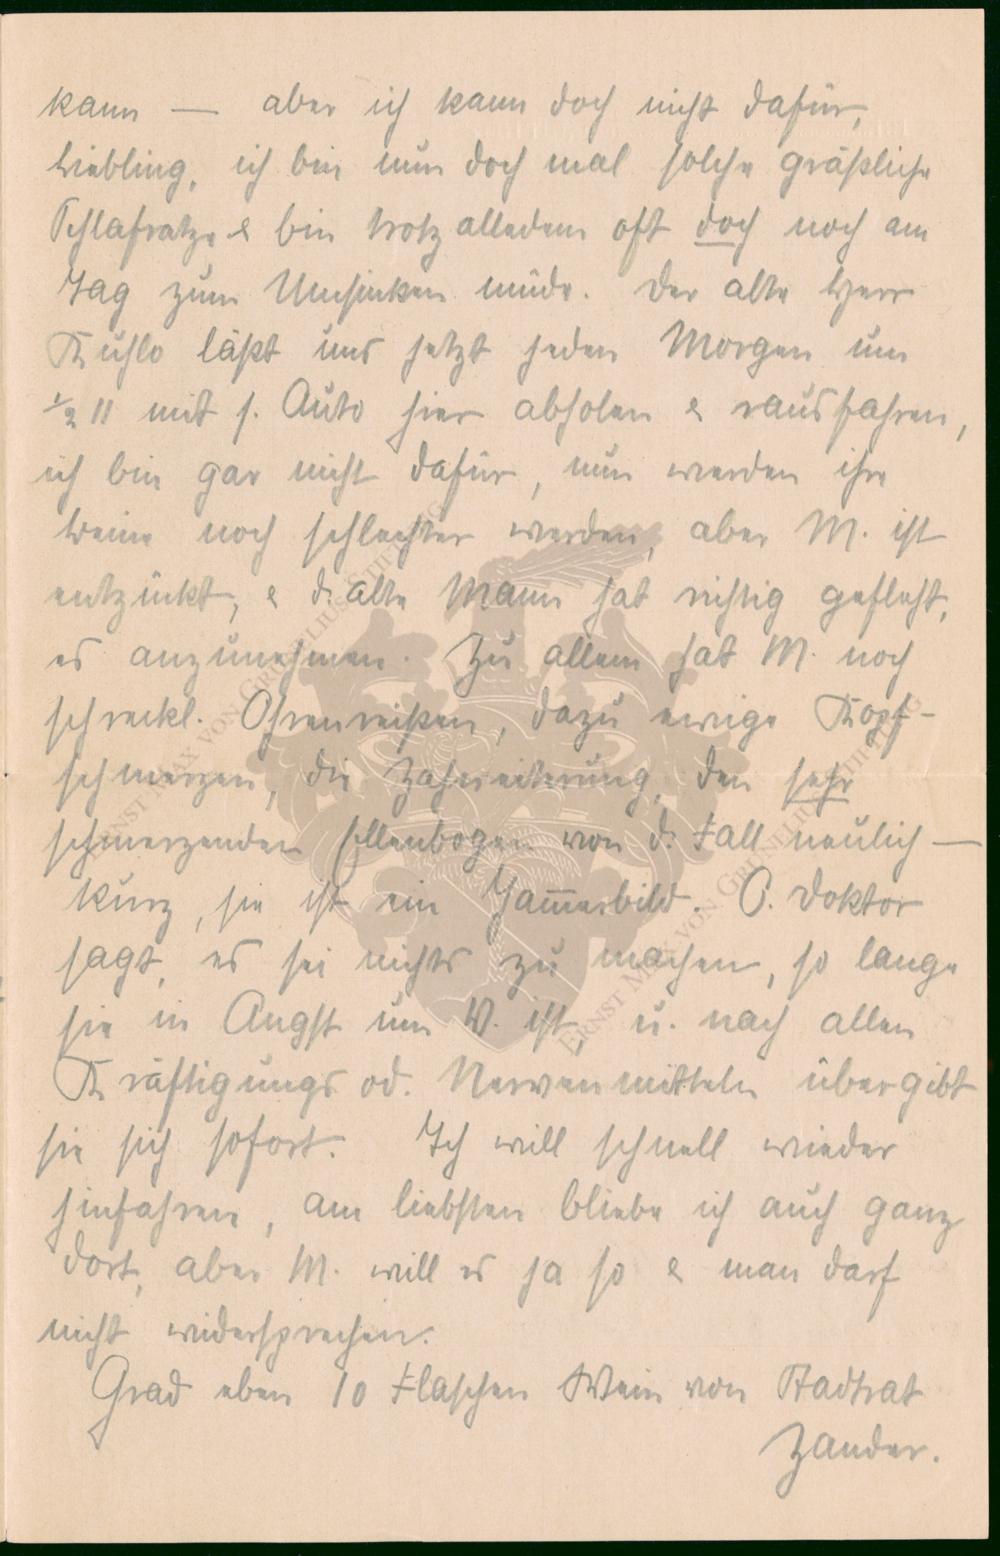 kann — aber ich kann doch nicht dafür,
Liebling, ich bin nun doch mal solche gräßliche
Schlafratze & bin trotz alledem oft doch noch am
Tag zum Umsinken müde. Der alte Herr
Kuhlo läßt uns jetzt jeden Morgen um
½ 11 mit s. Auto hier abholen & rausfahren,
ich bin gar nicht dafür, nun werden ihre
Beine noch schlechter werden, aber M. ist
entzückt, & d. alte Mann hat richtig gefleht,
es anzunehmen. Zu allem hat M. noch
schreckl. Ohrenreißen, dazu ewige Kopf-
schmerzen, die Zahneiterung, den sehr
schmerzenden Ellenbogen von d. Fall neulich —
kurz, sie ist ein Jam̅erbild. O. Doktor
sagt, es sei nichts zu machen, so lange
sie in Angst um W. ist, u. nach allen
Kräftigungs od. Nervenmitteln übergibt
sie sich sofort. Ich will schnell wieder
hinfahren, am liebsten bliebe ich auch ganz
dort, aber M. will es ja so & man darf
nicht widersprechen.
Grad eben 10 Flaschen Wein von Stadtrat
Zander.
ERNST MAX VON GRUNELIUS-STIFTUNG
ERNST MAX VON GRUNELIUS-STIFTUNG